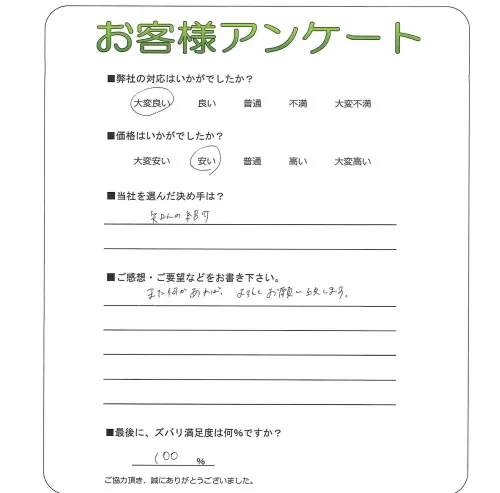 お客様アンケート
■弊社の対応はいかがでしたか？
大変良い 良い 普通 不満 大変不満
■価格はいかがでしたか？
大変安い 安い 普通 高い 大変高い
■当社を選んだ決め手は？
知人の紹介
■ご感想・ご要望などをお書き下さい。
また何かあれば、よろしくお願い致します。
■最後に、ズバリ満足度は何%ですか？
100 %
ご協力頂き、誠にありがとうございました。